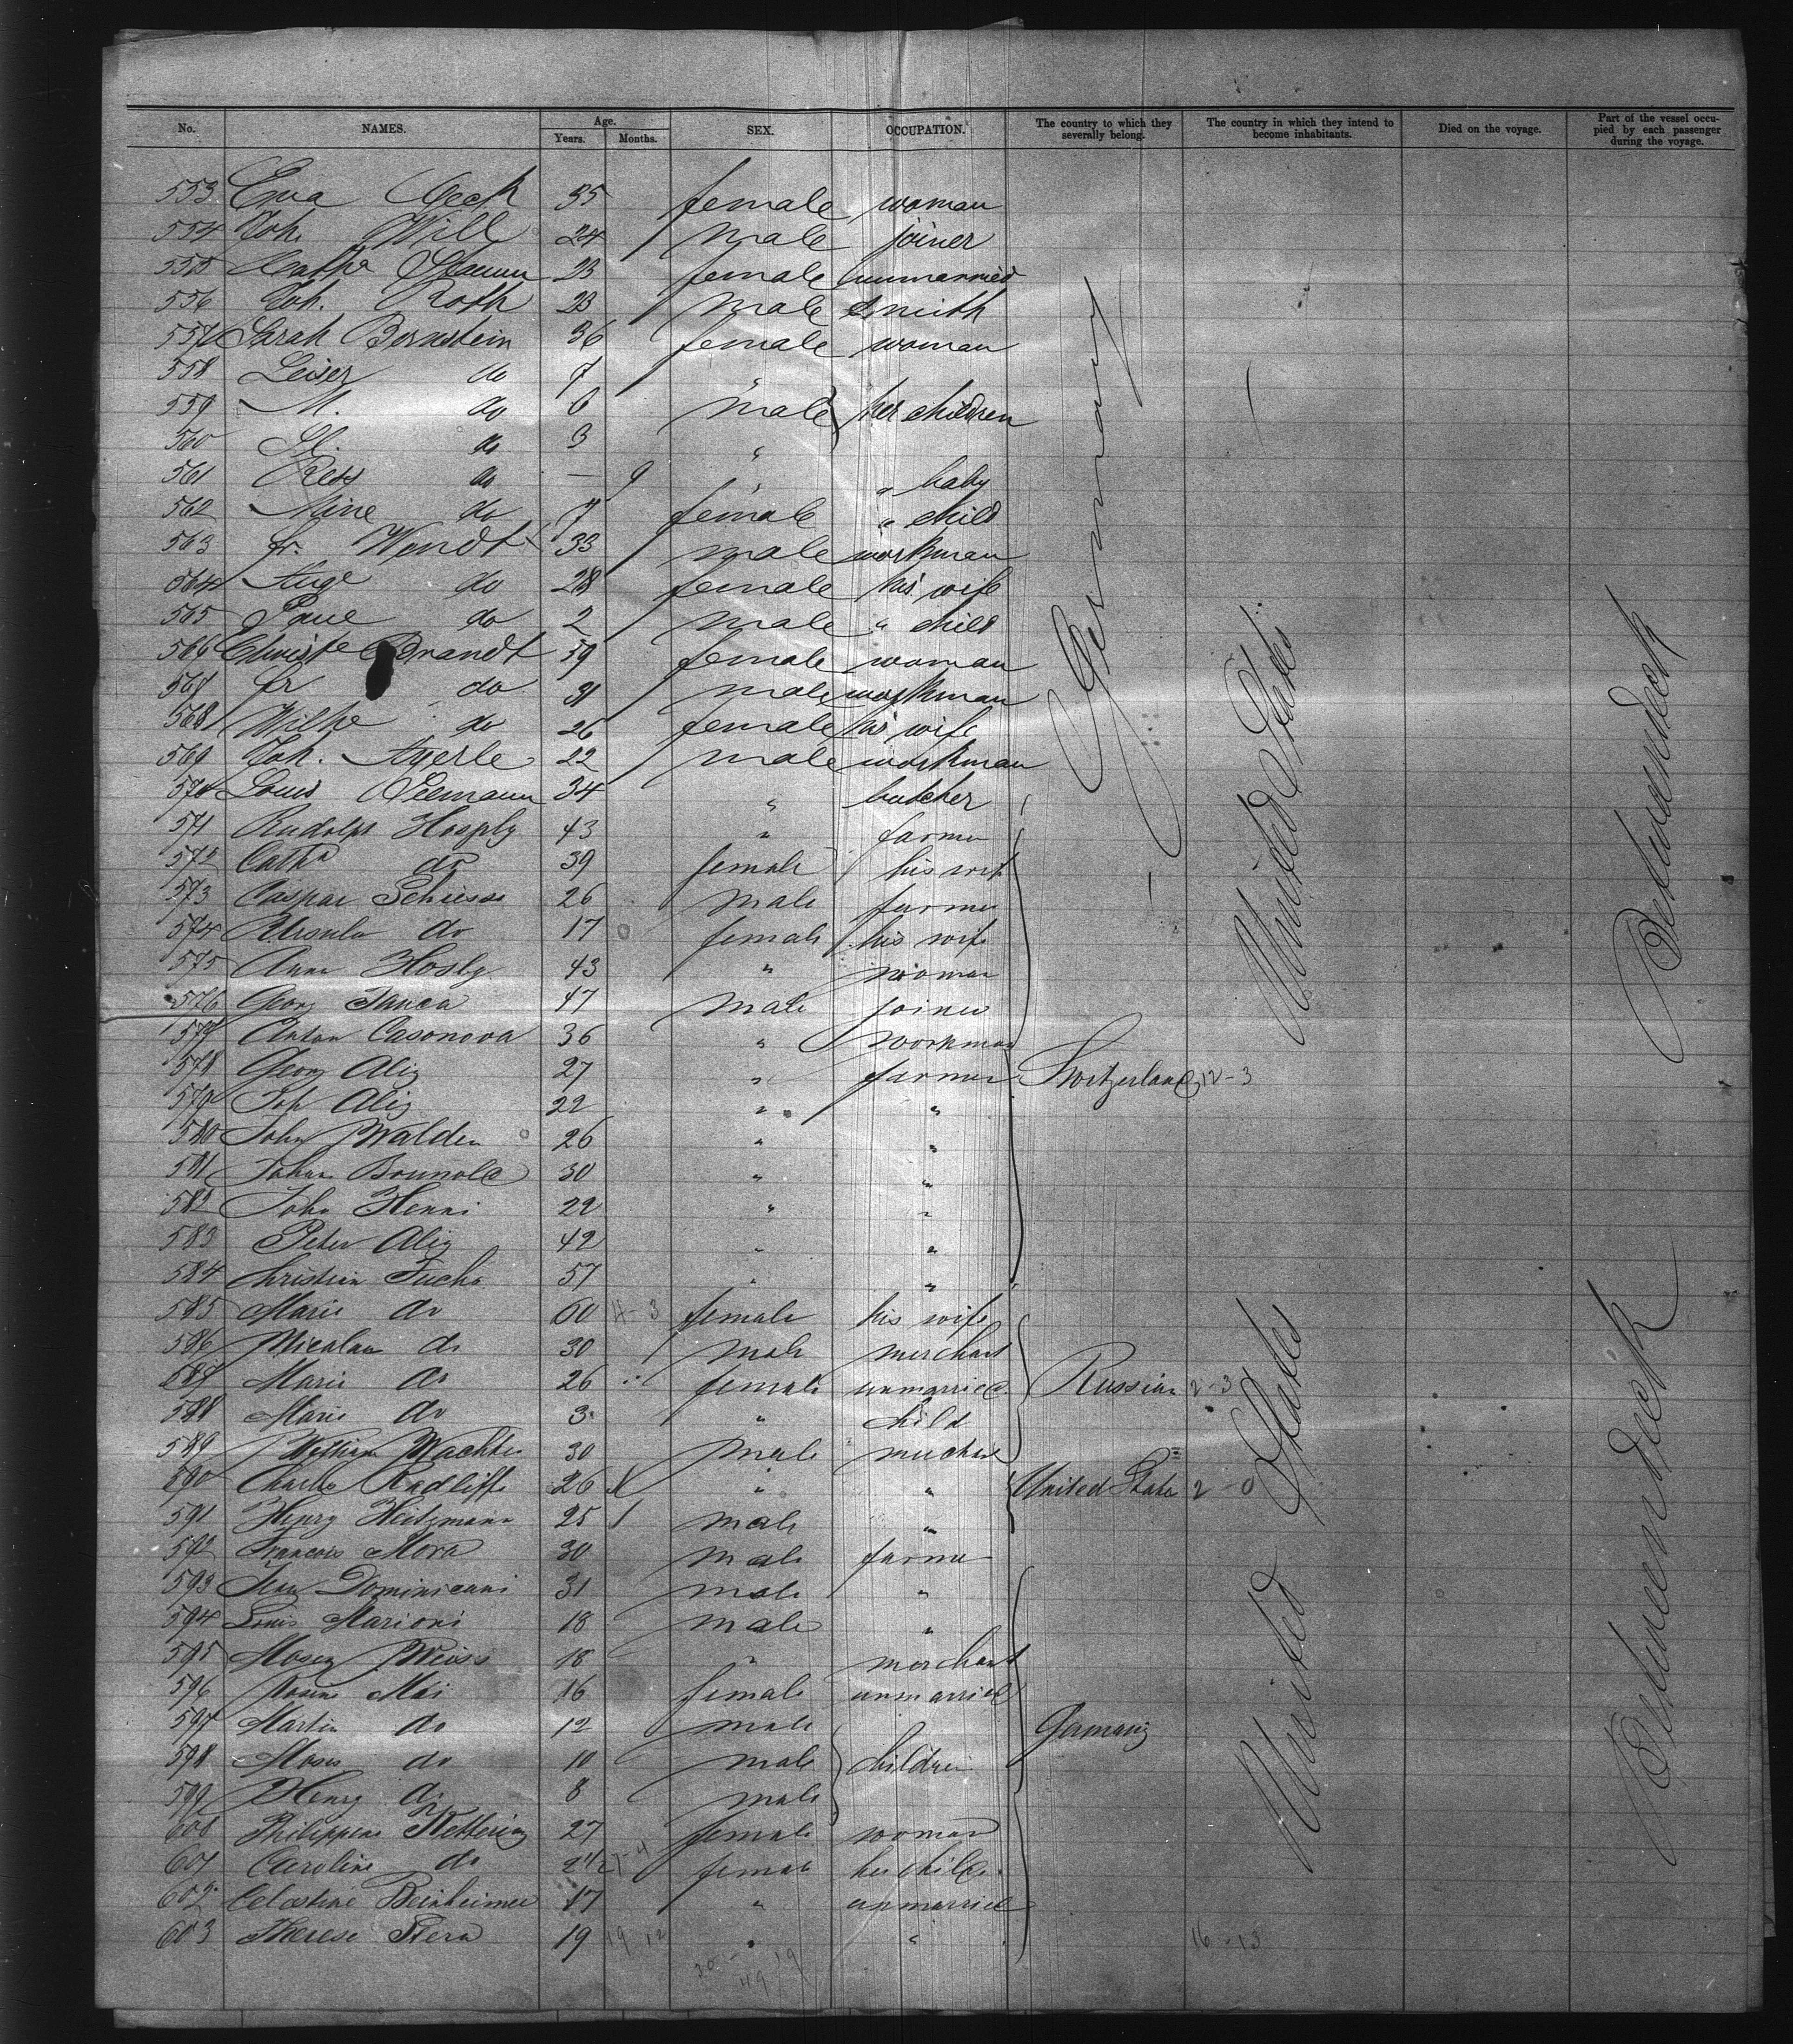 No. NAMES. Age. Years. Months. SEX. OCCUPATION. The country to which they severally belong. The country in which they intend to become inhabitants. Died on the voyage. Part of the vessel occupied by each passenger during the voyage.
553 Eva 35 female woman
554 Joh. Will 24 male joiner
555 Cathe 23 female unmarried
556 Joh. Roth 23 male Smith
557 Sarah Bernstein 36 female woman
558 Leiser do 7 "
559 M. do 6 male her children
560 do 3 "
561 do — 9 " " baby
562 Mine do 7 female " child
563 fr. Wendt 33 male workman
564 Auge do 28 female his wife
565 Paul do 2 male " child
566 Christe Brandt 59 female woman
567 fr do 31 male workman
568 Wilhe do 26 female his wife
569 Joh. Ayerle 22 male workman
Germany
570 Louis 34 " butcher
571 Rudolph 43 " farmer
572 Catha do 39 female his wife
573 Caspar Schiess 26 male farmer
574 Ursula do 17 female his wife
575 Anna Hosly 43 " woman
576 Georg 47 male joiner
577 Anton Casonova 36 " workman
578 Georg Alig 27 " farmer Switzerland 12-3
579 Joh Alig 22 " "
580 John Walder 26 " "
581 Johan Brunold 30 " "
582 John Henni 22 " "
583 Peter Alig 42 " "
584 Christian Fuchs 57 " "
United States
Betweendeck
585 Marie do 60 11-3 female his wife
586 Nicolaus do 30 male merchant
587 Marie do 26 female unmarried Russian 2-3
588 Marie do 3 " child
589 William Wachter 30 male merchant
590 Charles Radliffe 26 " " United State 2-0
591 Henry Heitzmann 25 male "
592 Francois Mora 30 male farmer
593 Jean Dominicani 31 male "
594 Louis Marioni 18 male "
595 Moses Weiss 18 " merchant
596 Mai 16 female unmarried
597 Martin do 12 male Germany
598 Moses do 10 male children
599 Henry do 8 male
600 Philippine Kettering 27 female woman
601 Caroline do 2 1/2 7-4 female her child
602 Celestine Beinheimer 17 " unmarried
603 Therese 19 19 12 " " 16-13
United States
Betweendeck